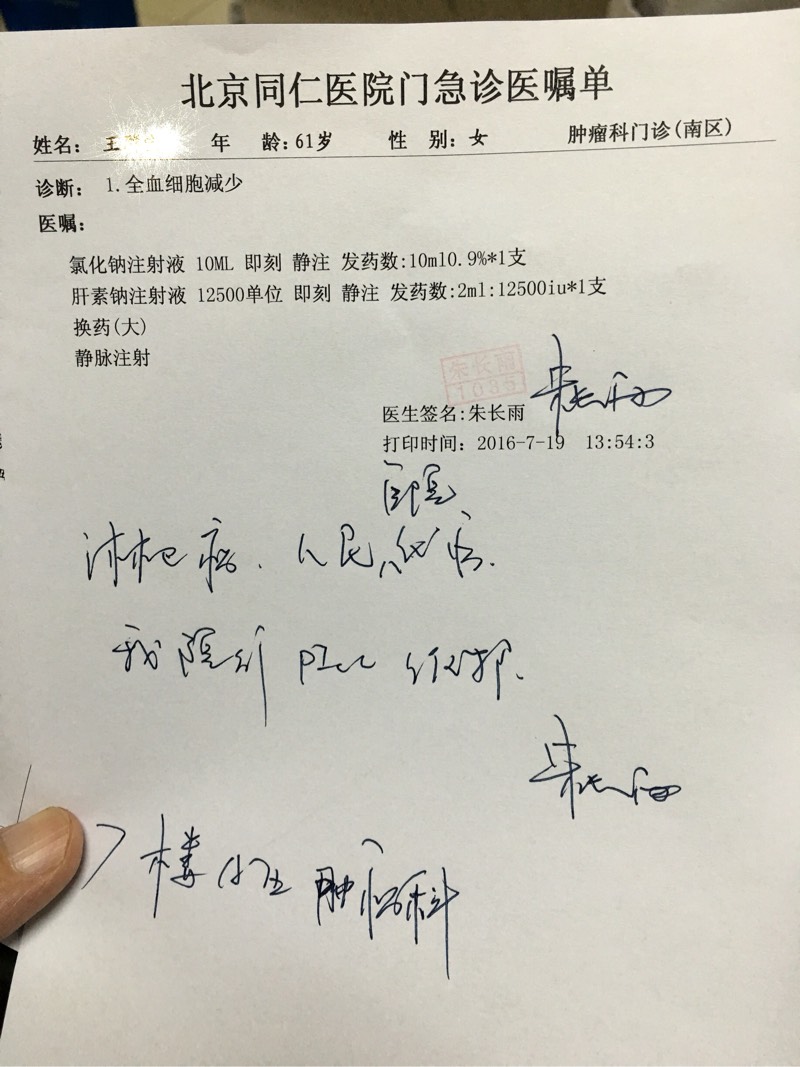 北京同仁医院门急诊医嘱单
姓名: 王 年 龄:61岁 性 别:女 肿瘤科门诊(南区)
诊断: 1.全血细胞减少
医嘱:
氯化钠注射液 10ML 即刻 静注 发药数:10ml0.9%*1支
肝素钠注射液 12500单位 即刻 静注 发药数:2ml:12500iu*1支
换药(大)
静脉注射
朱长雨
1036
医生签名:朱长雨 朱长雨
打印时间: 2016-7-19 13:54:3
医嘱
淋巴瘤. 人民
我院行 PICC 维护.
朱长雨
7楼 肿瘤科